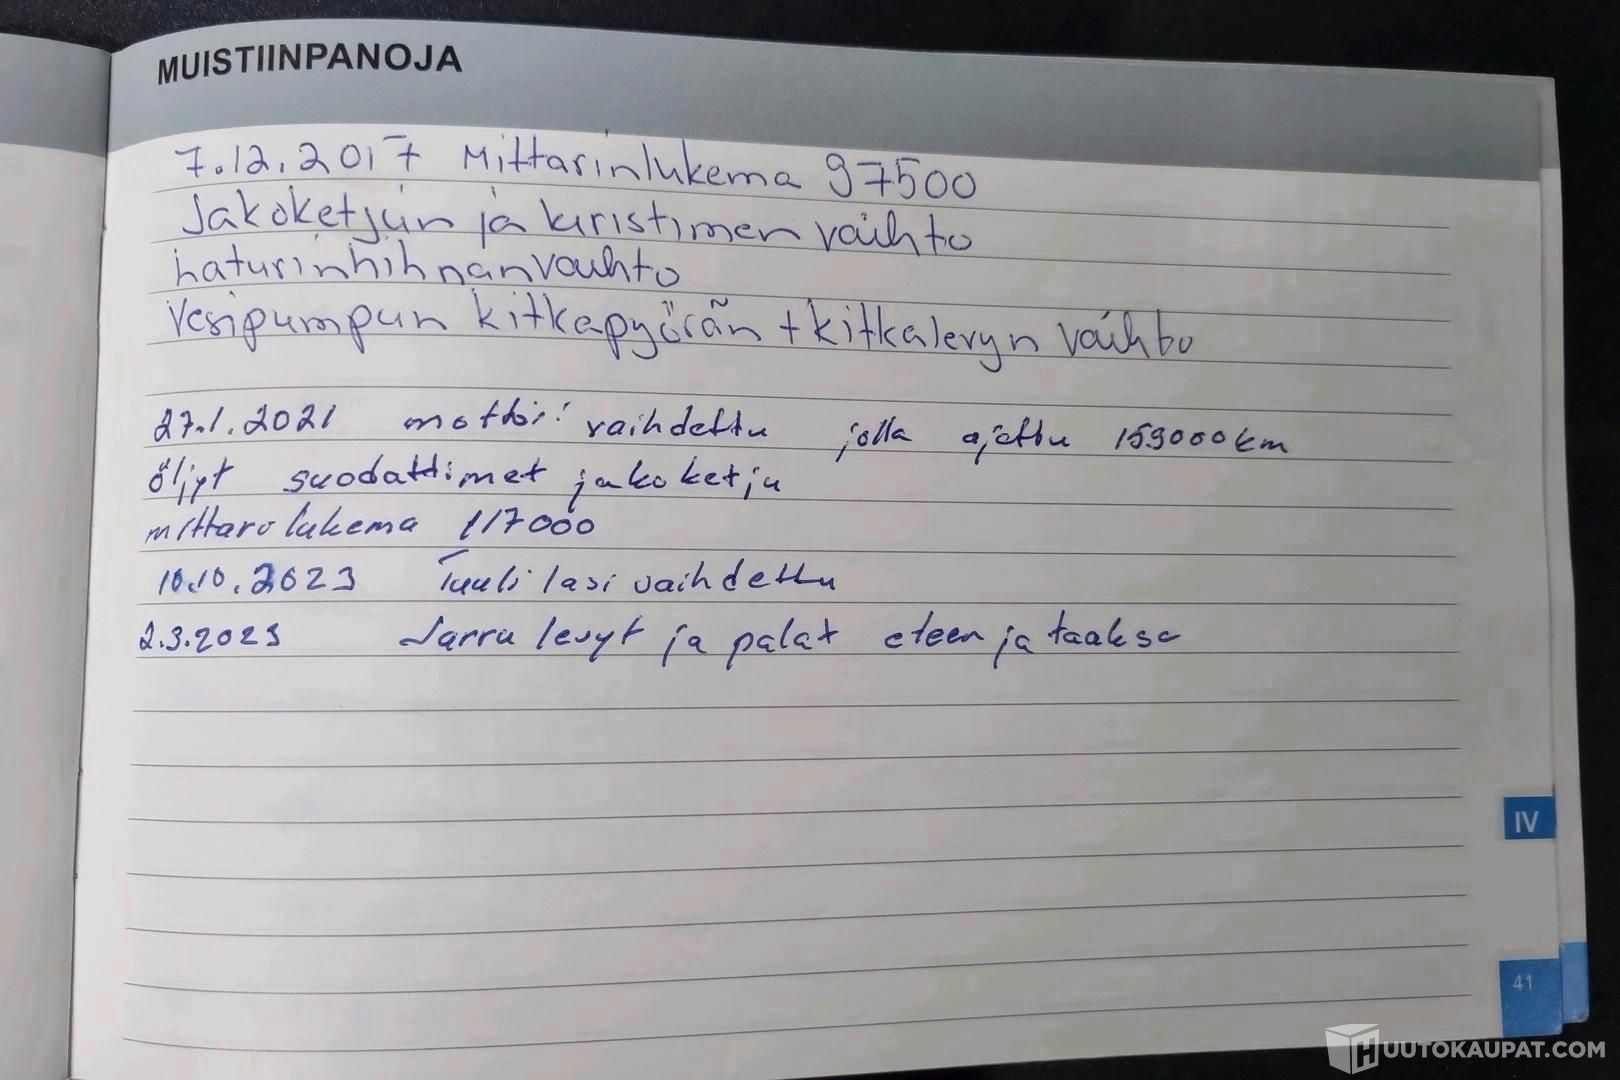 MUISTIINPANOJA
7.12.2017 Mittarinlukema 97500
Jakoketjun ja kiristimen vaihto
Laturinhihnanvaihto
Vesipumpun kitkapyörän + kitkalevyn vaihto
27.1.2021 mottöri vaihdettu jolla ajettu 159000km
öljyt suodattimet jakoketju
mittarolukema 117000
10.10.2023 Tuulilasi vaihdettu
2.3.2023 Jarru levyt ja palat eteen ja taakse
IV
41
HUUTOKAUPAT.COM